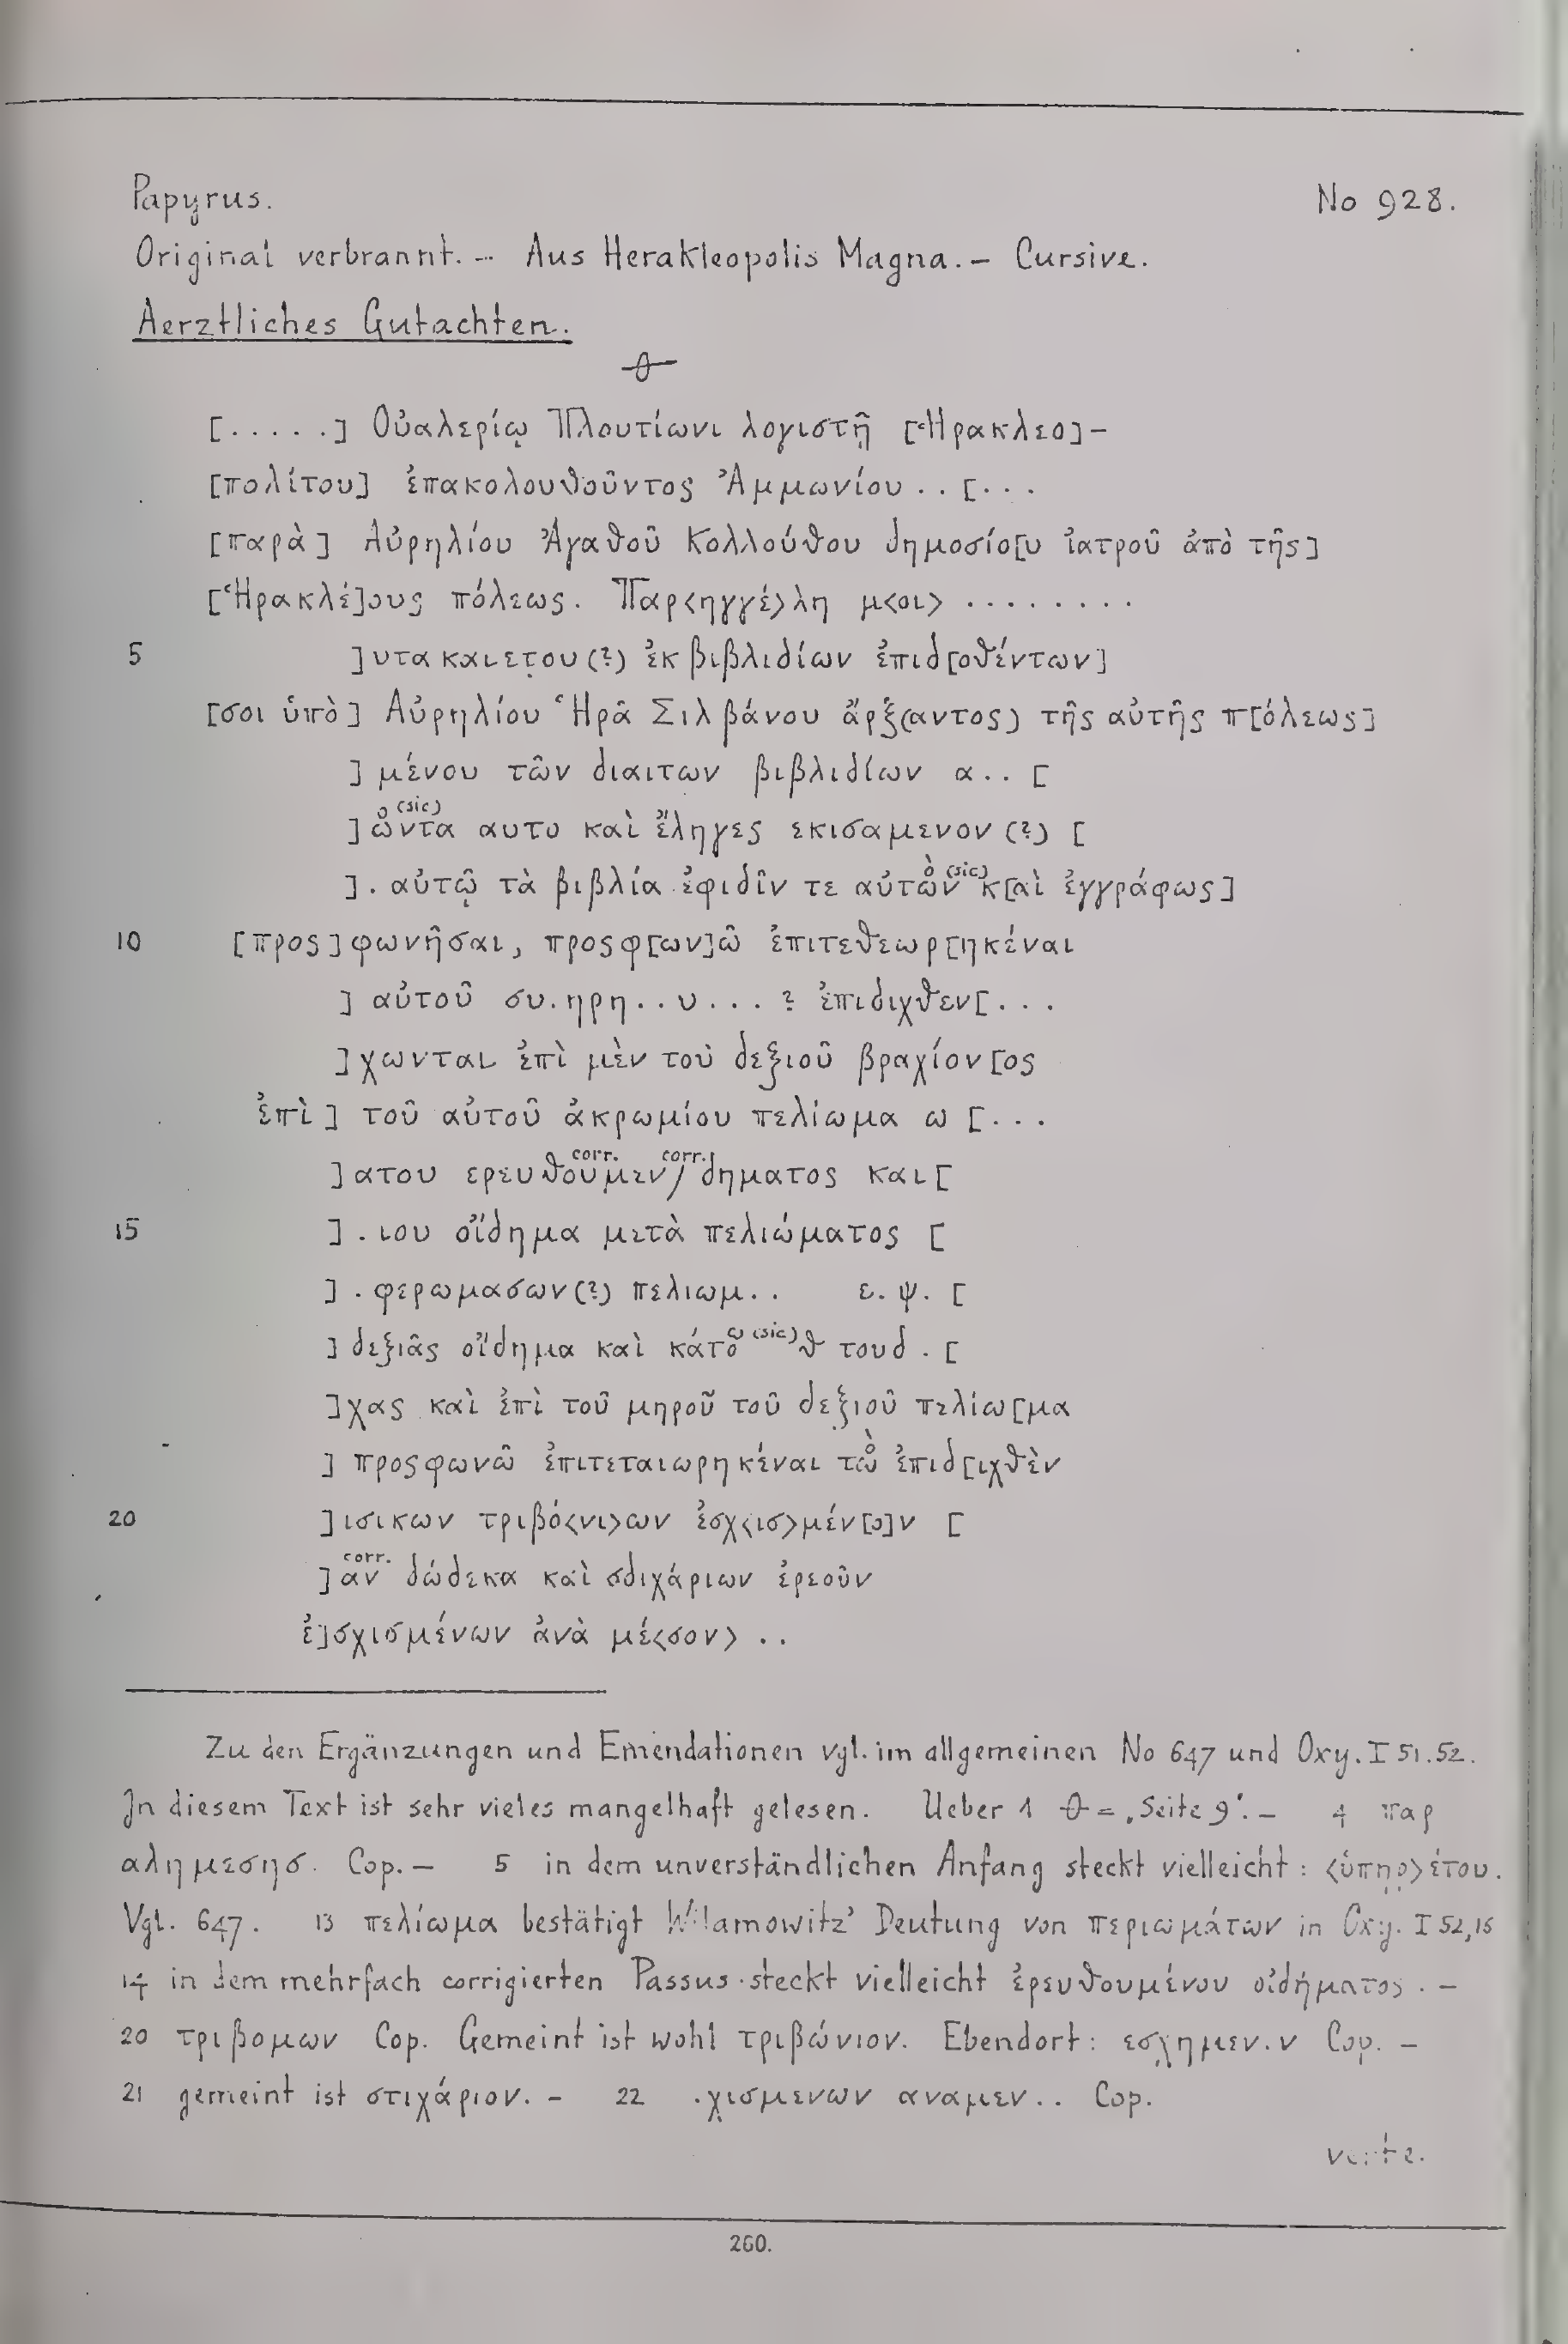 Papyrus. No 928.
Original verbrannt. - Aus Herakleopolis Magna. - Cursive.
Aerztliches Gutachten.
θ
[.....] Οὐαλερίῳ Πλουτίωνι λογιστῇ [Ἡρακλεο]-
[πολίτου] ἐπακολουθοῦντος Ἀμμωνίου .. [...
[παρὰ] Αὐρηλίου Ἀγαθοῦ Κολλούθου δημοσίο[υ ἰατροῦ ἀπὸ τῆς]
[Ἡρακλέ]ους πόλεως. Παρ<ηγγέ>λη μ<οι> ........
5 ]υτα καιετου(?) ἐκ βιβλιδίων ἐπιδ[οθέντων]
[σοι ὑπὸ] Αὐρηλίου Ἡρᾶ Σιλβάνου ἄρξ(αντος) τῆς αὐτῆς π[όλεως]
] μένου τῶν διαιτων βιβλιδίων α.. [
ο (sic)
] ὦντα αυτο καὶ ἔληγες εκισαμενον (?) [
ὸ (sic)
]. αὐτῷ τὰ βιβλία ἐφιδῖν τε αὐτῶν κ[αὶ ἐγγράφως]
10 [προς]φωνῆσαι, προςφ[ων]ῶ ἐπιτεθεωρ[ηκέναι
] αὐτοῦ συ.ηρη..υ...? ἐπιδιχθεν[...
]χωνται ἐπὶ μὲν τοῦ δεξιοῦ βραχίον[ος
ἐπὶ] τοῦ αὐτοῦ ἀκρωμίου πελίωμα ω [...
corr. corr.
]ατου ερευθουμεν/δηματος και[
15 ]. ιου οἴδημα μετὰ πελιώματος [
]. φερωμασων(?) πελιωμ.. ε. ψ. [
ω (sic)
] δεξιᾶς οἴδημα καὶ κάτοθ τουδ. [
]χας καὶ ἐπὶ τοῦ μηροῦ τοῦ δεξιοῦ πελίω[μα
ὸ
] προςφωνῶ ἐπιτεταιωρηκέναι τῶ ἐπιδ[ιχθὲν
20 ]ισικων τριβό<νι>ων ἐσχ<ισ>μέν[ο]ν [
corr.
]αν δώδεκα καὶ σδιχάριων ἐρεοῦν
ἐ]σχισμένων ἀνὰ μέ<σον> ..
Zu den Ergänzungen und Emendationen vgl. im allgemeinen No 647 und Oxy. I 51.52.
In diesem Text ist sehr vieles mangelhaft gelesen. Ueber 1 θ = „Seite 9". - 4 παρ
αλημεσησ. Cop. - 5 in dem unverständlichen Anfang steckt vielleicht: <ὑπηρ>έτου.
Vgl. 647. 13 πελίωμα bestätigt Wilamowitz' Deutung von περιωμάτων in Oxy. I 52,16
14 in dem mehrfach corrigierten Passus steckt vielleicht ἐρευθουμένου οἰδήματος. -
20 τριβομων Cop. Gemeint ist wohl τριβώνιον. Ebendort: εσχημεν.ν Cop. -
21 gemeint ist στιχάριον. - 22 .χισμενων αναμεν.. Cop.
verte.
260.